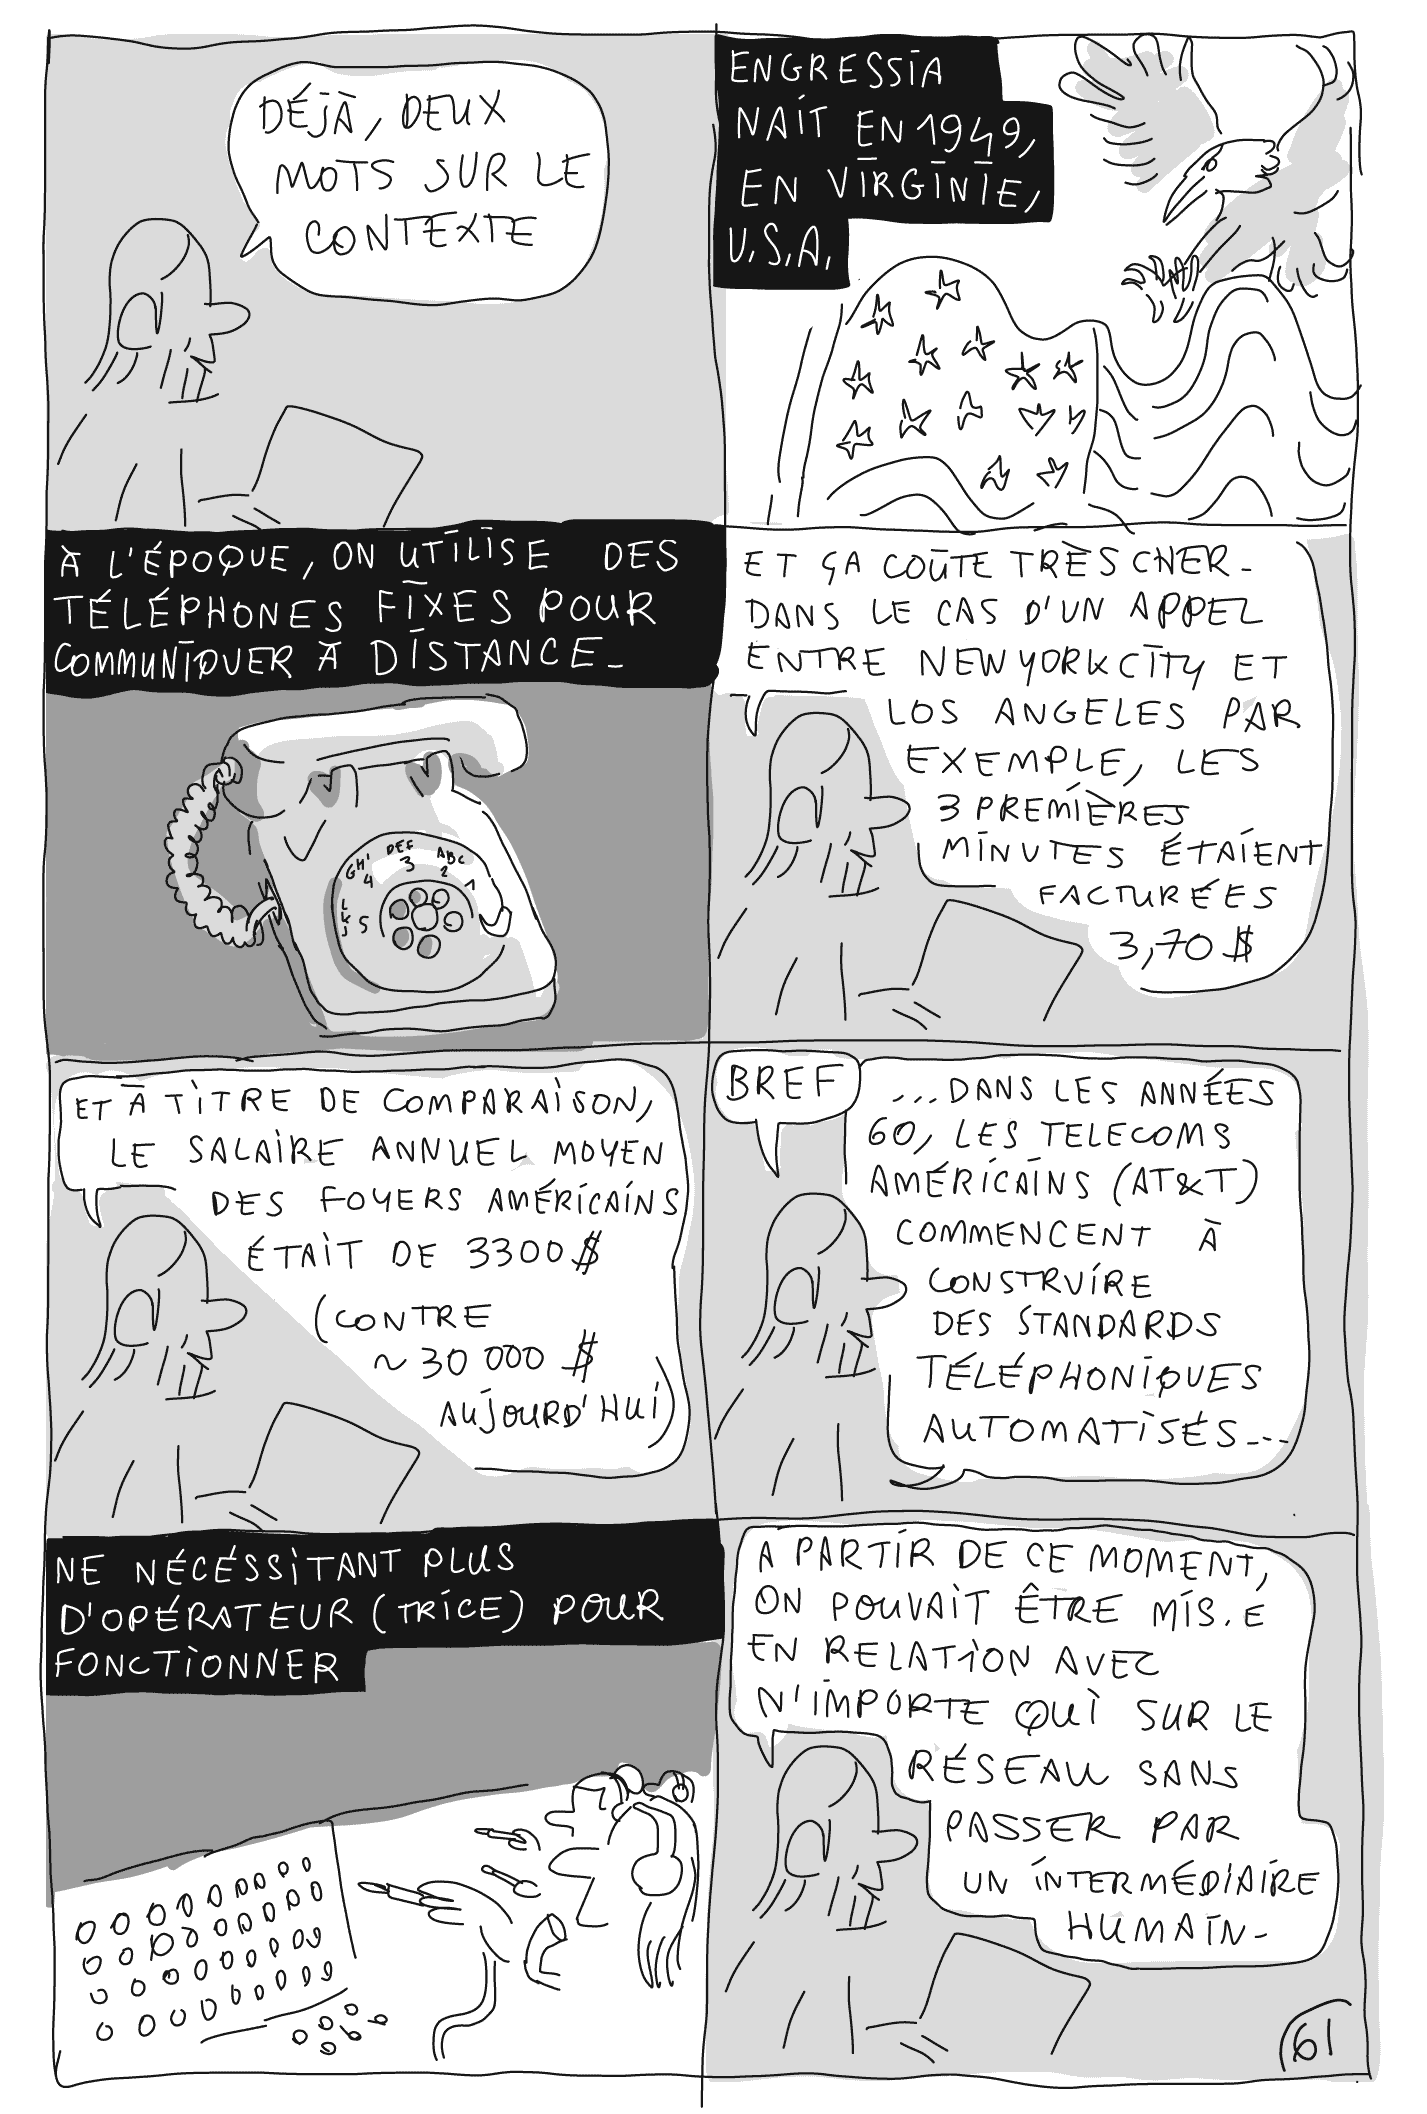 DÉJÀ, DEUX
MOTS SUR LE
CONTEXTE
ENGRESSIA
NAIT EN 1949,
EN VIRGINIE,
U.S.A.
À L'ÉPOQUE, ON UTILISE DES
TÉLÉPHONES FIXES POUR
COMMUNIQUER À DISTANCE_
GHI
4
DEF
3
ABC
2
1
LKJ
5
ET ÇA COÛTE TRÈS CHER_
DANS LE CAS D'UN APPEL
ENTRE NEW YORK CITY ET
LOS ANGELES PAR
EXEMPLE, LES
3 PREMIÈRES
MINUTES ÉTAIENT
FACTURÉES
3,70 $
ET À TITRE DE COMPARAISON,
LE SALAIRE ANNUEL MOYEN
DES FOYERS AMÉRICAINS
ÉTAIT DE 3300 $
(CONTRE
~ 30 000 $
AUJOURD'HUI)
BREF
...DANS LES ANNÉES
60, LES TELECOMS
AMÉRICAINS (AT&T)
COMMENCENT À
CONSTRUIRE
DES STANDARDS
TÉLÉPHONIQUES
AUTOMATISÉS...
NE NÉCÉSSITANT PLUS
D'OPÉRATEUR (TRICE) POUR
FONCTIONNER
A PARTIR DE CE MOMENT,
ON POUVAIT ÊTRE MIS.E
EN RELATION AVEC
N'IMPORTE QUI SUR LE
RÉSEAU SANS
PASSER PAR
UN INTERMÉDIAIRE
HUMAIN_
61